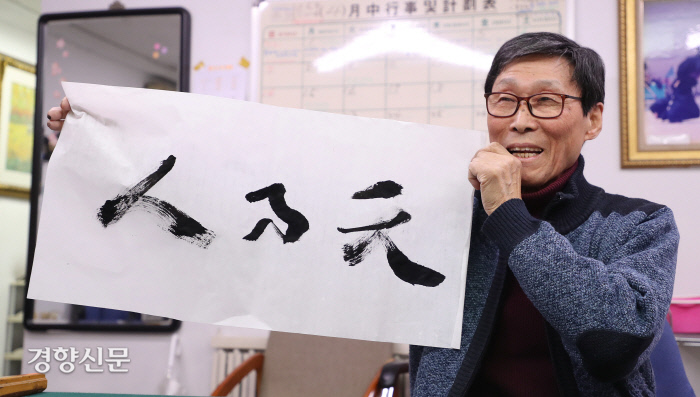 月中行事및計劃表
人乃天
경향신문